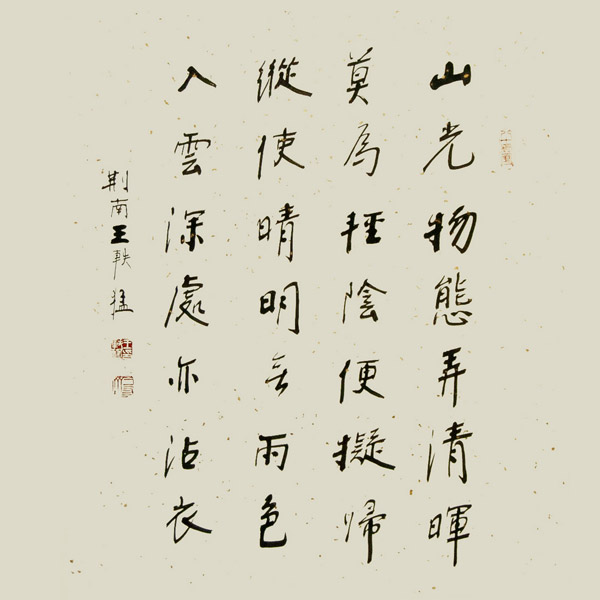 山光物態弄清暉
莫為輕陰便擬歸
縱使晴明无雨色
入雲深處亦沾衣
荆南王軼猛